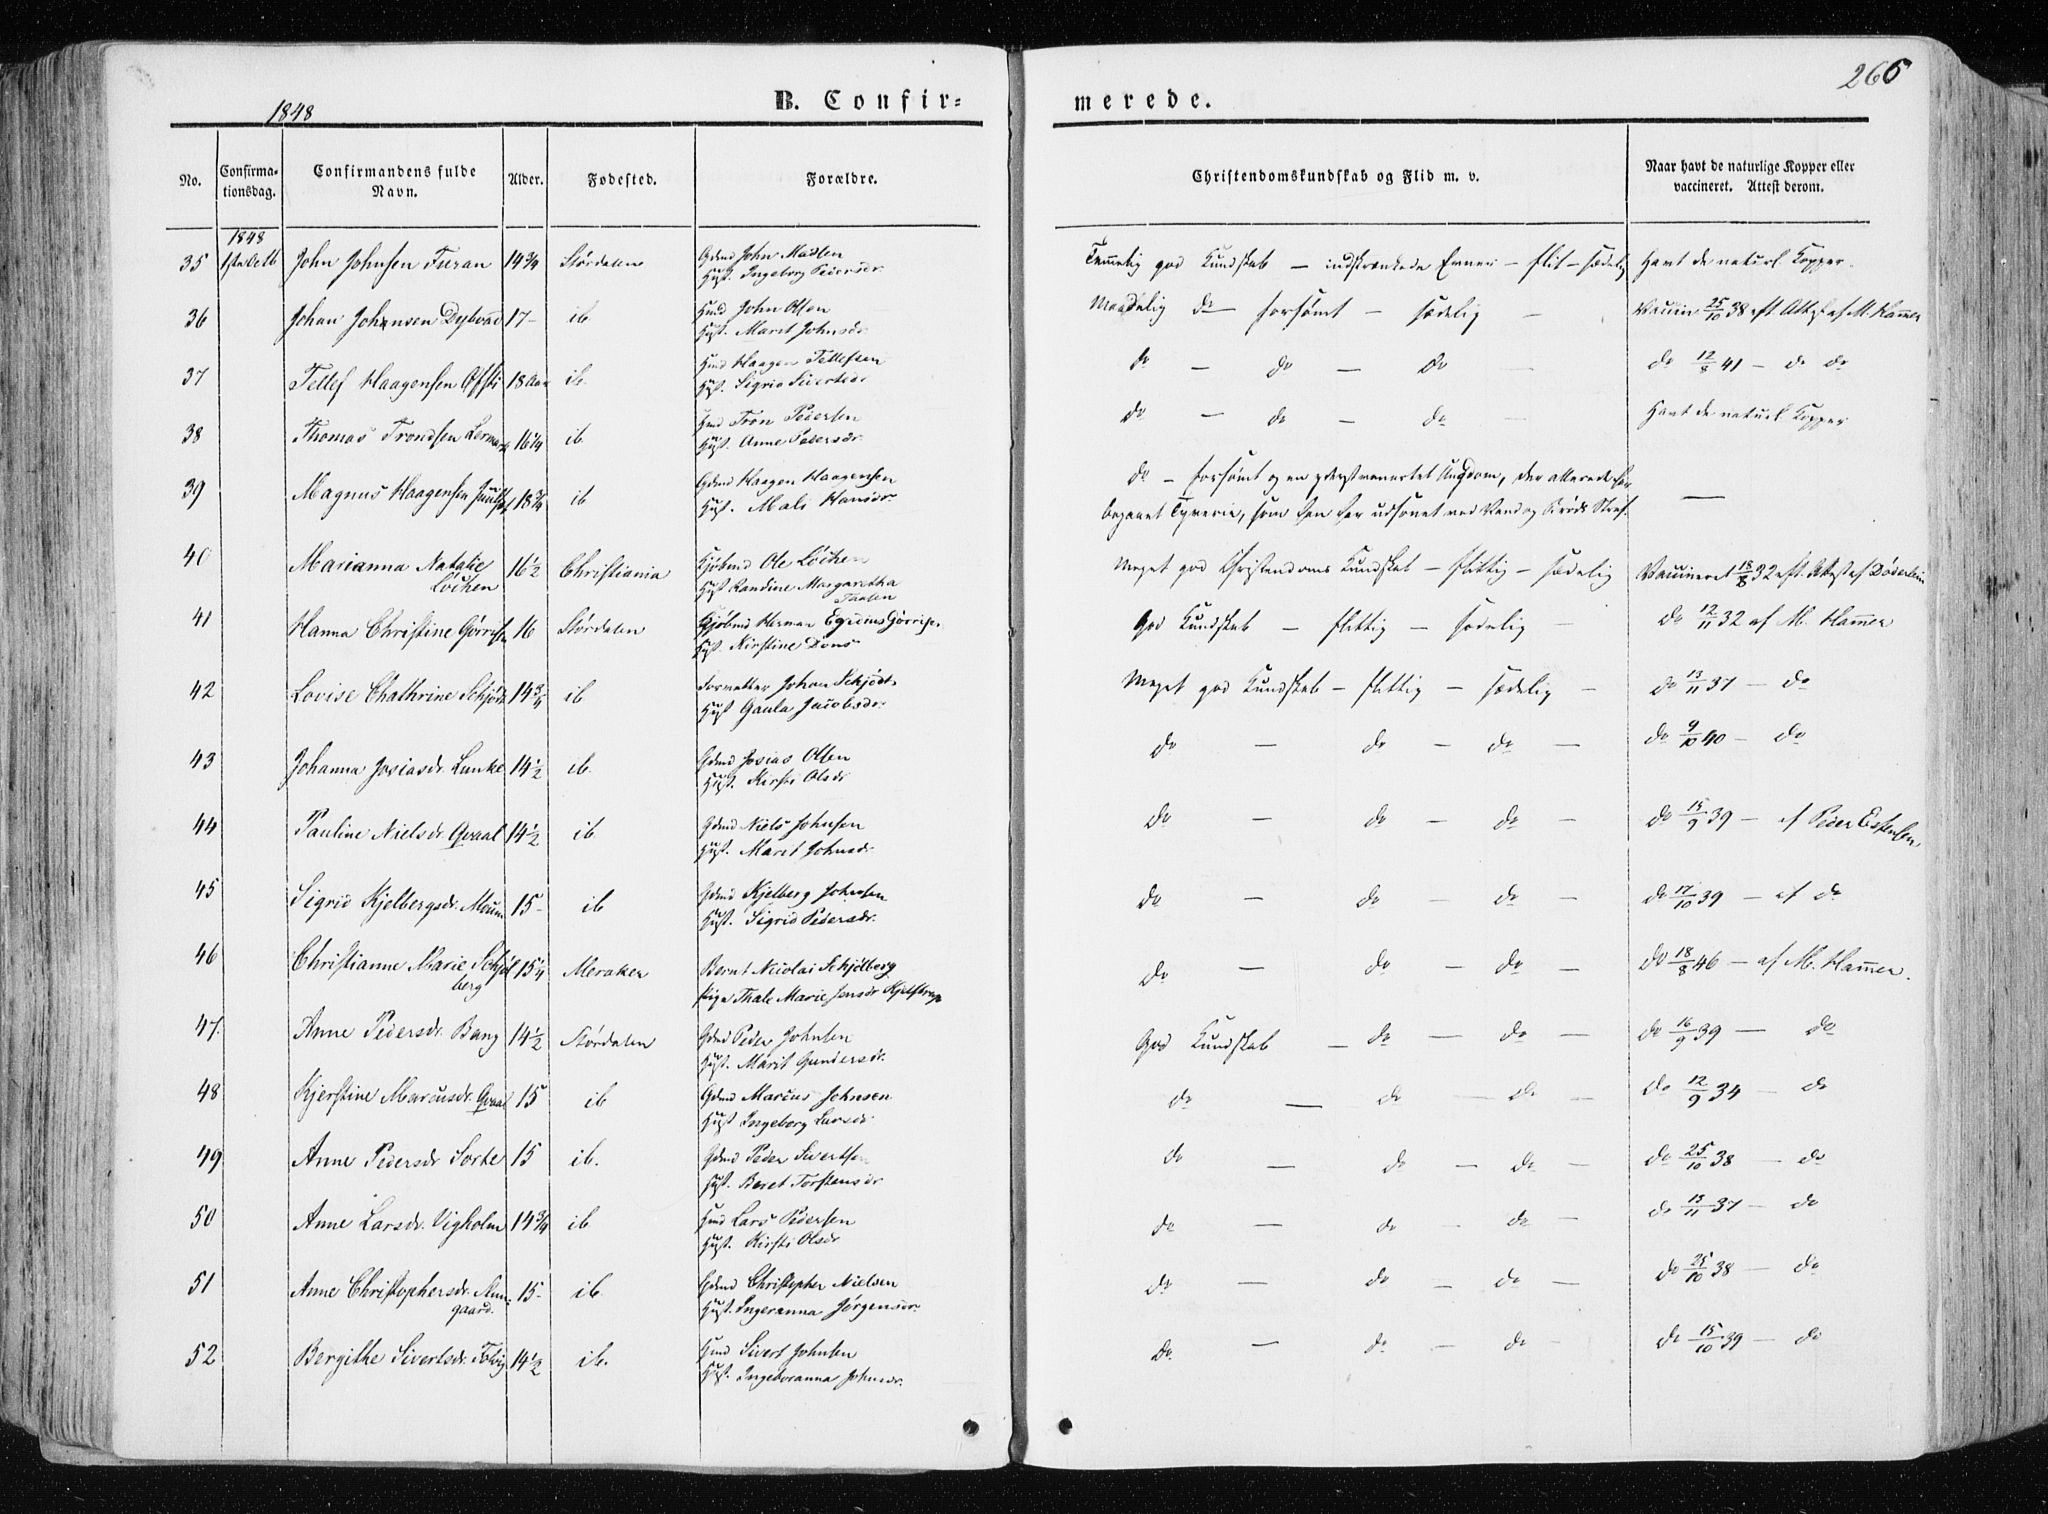 1848
B. Confir=
merede.
266
No.
Confirma-
tionsdag.
Confirmandens fulde
Navn.
Alder.
Fødested.
Forældre.
Christendomskundskab og Flid m. v.
Naar havt de naturlige Kopper eller
vaccineret. Attest derom.
1848
35 1ste Octb John Johnsen Turan 14 3/4 Størdalen Gdmd John Madsen
Hust. Ingeborg Pedersdr
Temmelig god Kundskab — indskrænkede Evner — flit — sædelig Havt de naturl. Kopper.
36 Johan Johnsen Dybvad 17 - ib Husmd John Olsen
Hust. Maret Johnsdr
Maadelig do — forsømt — sædelig — Vaccin 25/10 38 eft Attest af M. Hammer
37 Tellef Haagensen Ofsti 18 Aar ib. Husmd Haagen Tellefsen
Hust. Sigrid Sivertsdr
do — do — do — do 12/8 41 — do do
38 Thomas Trondsen 16 1/4 ib Husmd Tron Pedersen
Hust. Anne Pedersdr.
do — do — do — Havt de naturl. Kopper
39 Magnus Haagensen 18 3/4 ib Gdmd Haagen Haagensen
Hust. Mali Hansdr
do — forsømt og en yderst vanartet Ungdom, der allerede har
begaaet Tyverie, som han har udsonet ved Vand og Brøds Straf. —
40 Marianna Natalie
Løchen 16 1/2 Christiania Kjøbmd Ole Løchen
Hust Randine Margaretha
Meget god Christendoms Kundskab — flittig — sædelig Vaccineret 18/8 32 eft. Attest af Døderlein
41 Hanna Christine Gørrisen 16 Størdalen Kjøbmd Herman Egidius Gørrisen
Hust. Kirstine Dons
God Kundskab — flittig — sædelig — do 12/11 32 af M. Hammer
42 Lovise Chathrine Schjødt 14 3/4 ib Johan Schjødt
Hust Gaula Jacobsdr.
Meget god Kundskab — flittig — sædelig — do 13/11 37 — do
43 Johanna Josiasdr. Lunke 14 1/2 ib. Gdmd Josias Olsen
Hust. Kirsti Olsdr
do — do — do — do 9/10 40 — do
44 Pauline Nielsdr. Qvaal 14 1/2 ib Gdmd Niels Johnsen
Hust. Maret Johnsdr.
do — do — do — do 15/9 39 — af Peder Estensen
45 Sigrid Kjelbergsdr. Moum 15 - ib Gdmd Kjelberg Johnsen
Hust. Sigrid Pedersdr.
do — do — do — do 17/10 39 — af do
46 Christianne Marie Schjøl
berg 15 1/4 Meraker Bernt Nicolai Schjølberg
Pige Thale Marie Jensdr Kjelstrup
do — do — do — do 18/8 46 — af M. Hammer.
47. Anne Pedersdr. Bang 14 1/2 Størdalen Gdmd Peder Johnsen
Hust. Marit Gundersdr.
God Kundskab — do — do — do 16/9 39 — do
48 Kjerstine Marcusdr. Qvaal 15 ib Gdmd Marcus Johnsen
Hust Ingeborg Larsdr
do — do — do — do 12/9 34 — do
49 Anne Pedersdr Sorte 15 ib. Gdmd Peder Sivertsen
Hust. Beret Torstensdr
do — do — do — do 25/10 38 — do
50 Anne Larsdr. Vigholm 14 3/4 ib Husmd Lars Pedersen
Hust. Kirsti Olsdr
do — do — do — do 13/11 37 — do
51 Anne Christophersdr.
gaard. 15 - ib. Gdmd Christopher Nielsen
Hust. Ingeranna Jørgensdr.
do — do — do — do 25/10 38 — do
52 Bergithe Sivertsdr. 14 1/2 ib. Husmd Sivert Johnsen
Hust. Ingeboranna Johnsdr.
do — do — do — do 15/10 39 — do